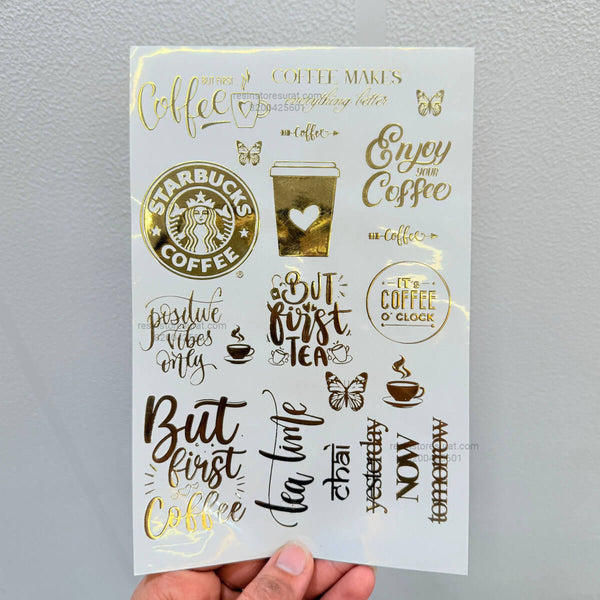 BUT FIRST
Coffee
COFFEE MAKES
everything better
resinstoresurat.com
8200425601
Coffee
Enjoy
YOUR
Coffee
STARBUCKS
COFFEE
®
Coffee
IT'S
COFFEE
O' CLOCK
BUT
first
TEA
positive
vibes
only
resinstoresurat.com
8200425601
But
first
Coffee
tea time
chai
yesterday
NOW
tomorrow
resinstoresurat.com
8200425601